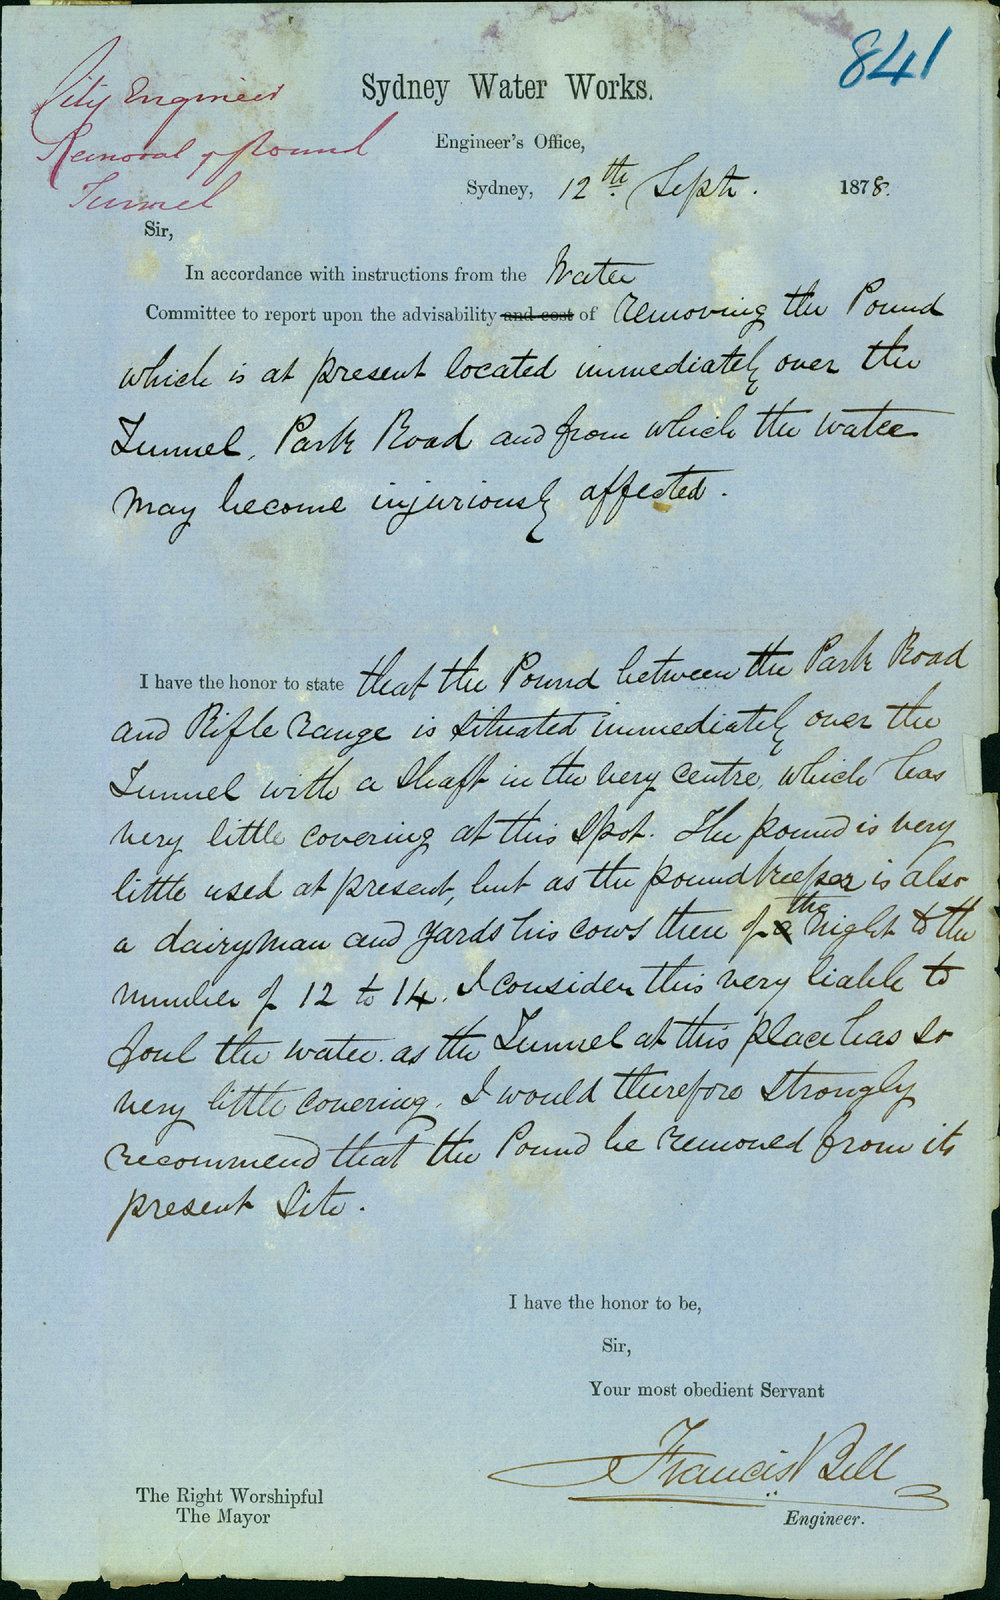 841
City Engineer
Removal of Pound
Tunnel
Sydney Water Works.
Engineer's Office,
Sydney, 12th Septr. 1878.
Sir,
In accordance with instructions from the Water
Committee to report upon the advisability and cost of removing the Pound
which is at present located immediately over the
Tunnel, Park Road and from which the water
may become injuriously affected.
I have the honor to state that the Pound between the Park Road
and Rifle range is situated immediately over the
Tunnel with a Shaft in the very centre, which has
very little covering at this spot. The pound is very
little used at present, but as the poundkeeper is also
a dairyman and yards his cows there of a the night to the
number of 12 to 14. I consider this very liable to
foul the water as the Tunnel at this place has so
very little covering. I would therefore strongly
recommend that the Pound be removed from its
present site.
I have the honor to be,
Sir,
Your most obedient Servant
Francis Bell
Engineer.
The Right Worshipful
The Mayor